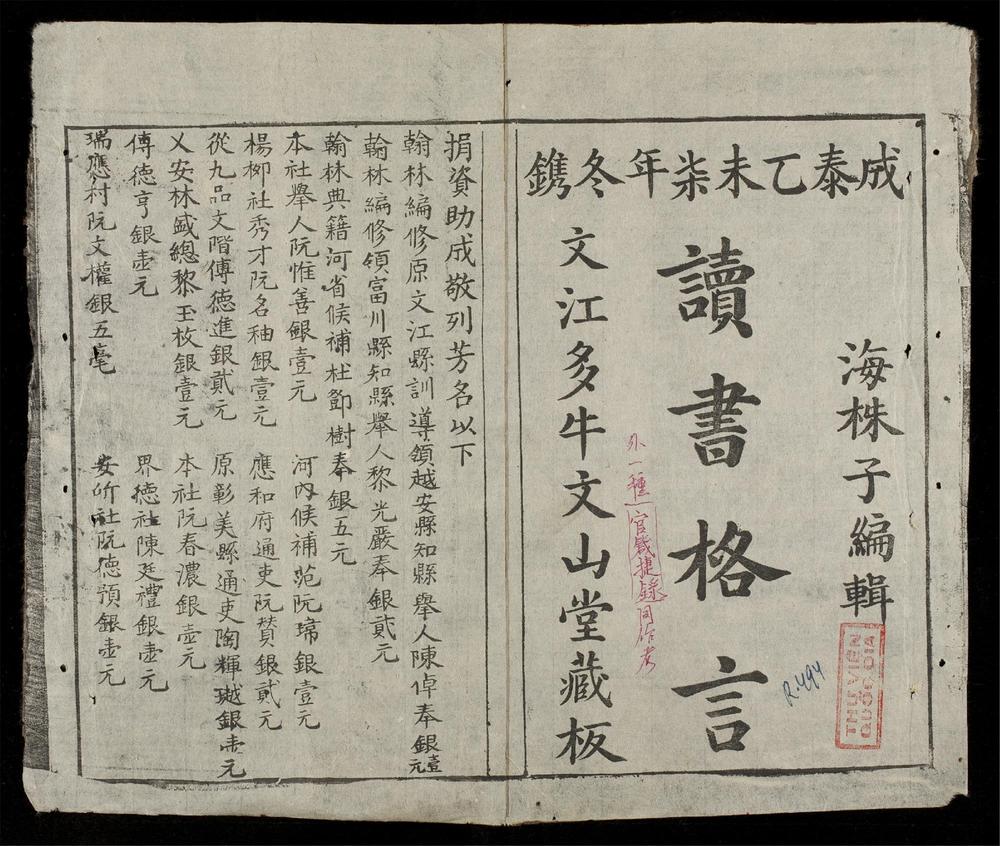 成泰乙未柒年冬鐫
海株子編輯
讀書格言
外一種官箴捷錄同作者
文江多牛文山堂藏板
R.494
THƯ VIỆN
QUỐC GIA
捐資助成敬列芳名以下
翰林編修原文江縣訓導領越安縣知縣舉人陳倬奉銀壹元
翰林編修領富川縣知縣舉人黎光嚴奉銀貳元
翰林典籍河省候補杜鄧樹奉銀五元
本社舉人阮惟善銀壹元 河內候補范阮㻛銀壹元
楊柳社秀才阮名秞銀壹元 應和府通吏阮賛銀貳元
從九品文階傅德進銀貳元 原彰美縣通吏陶輝璲銀壶元
乂安林盛總黎玉枚銀壹元 本社阮春濃銀壶元
傅德亨銀壶元 界德社陳廷禮銀壶元
瑞應村阮文權銀五毫 安𠩕社阮德預銀壶元